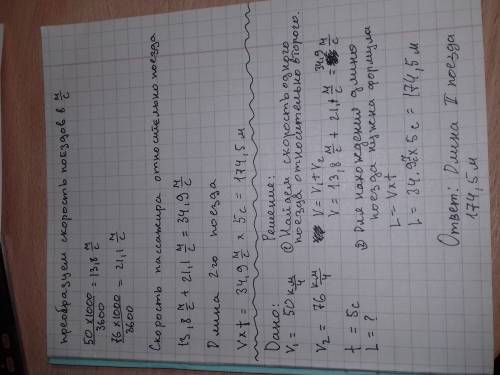 преобразуем скорость поездов в м/с
50 x 1000 / 3600 = 13,8 м/с
76 x 1000 / 3600 = 21,1 м/с
Скорость пассажира относительно поезда
13,8 м/с + 21,1 м/с = 34,9 м/с
Длина 2го поезда
V x t = 34,9 м/с x 5с = 174,5 м
Дано:
V₁ = 50 км/ч
V₂ = 76 км/ч
t = 5с
L = ?
Решение:
① Найдем скорость одного
поезда относительно второго.
V = V₁ + V₂
V = 13,8 м/с + 21,1 м/с = 34,9 м/с
② Для нахождения длино
поезда нужна формула
L = V x t
L = 34,9 x 5с = 174,5 м
Ответ: Длина II поезда
174,5 м